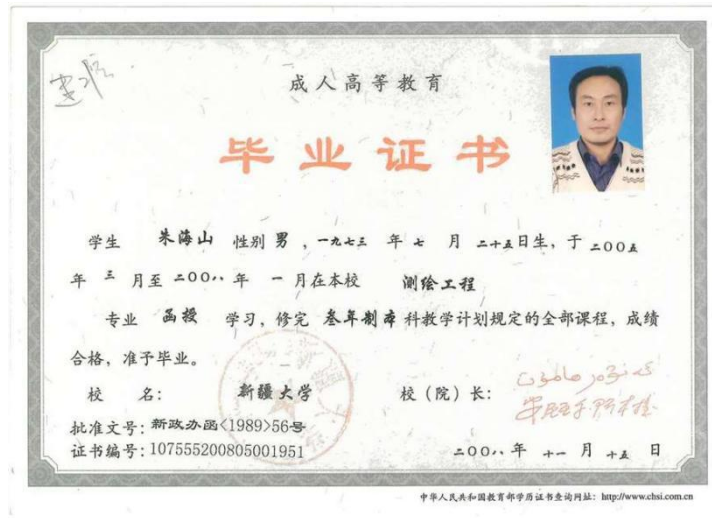 成人高等教育
毕业证书
学生 朱海山 性别 男 ，一九七三 年 七 月 二十五日生，于 二00五
年 三 月至 二00八 年 一 月在本校 测绘工程
专业 函授 学习，修完 叁年制本 科教学计划规定的全部课程，成绩
合格，准予毕业。
校 名： 新疆大学 校（院）长：
批准文号：新政办函<1989>56号
证书编号：107555200805001951 二00八 年 十一 月 十五 日
中华人民共和国教育部学历证书查询网址：http://www.chsi.com.cn